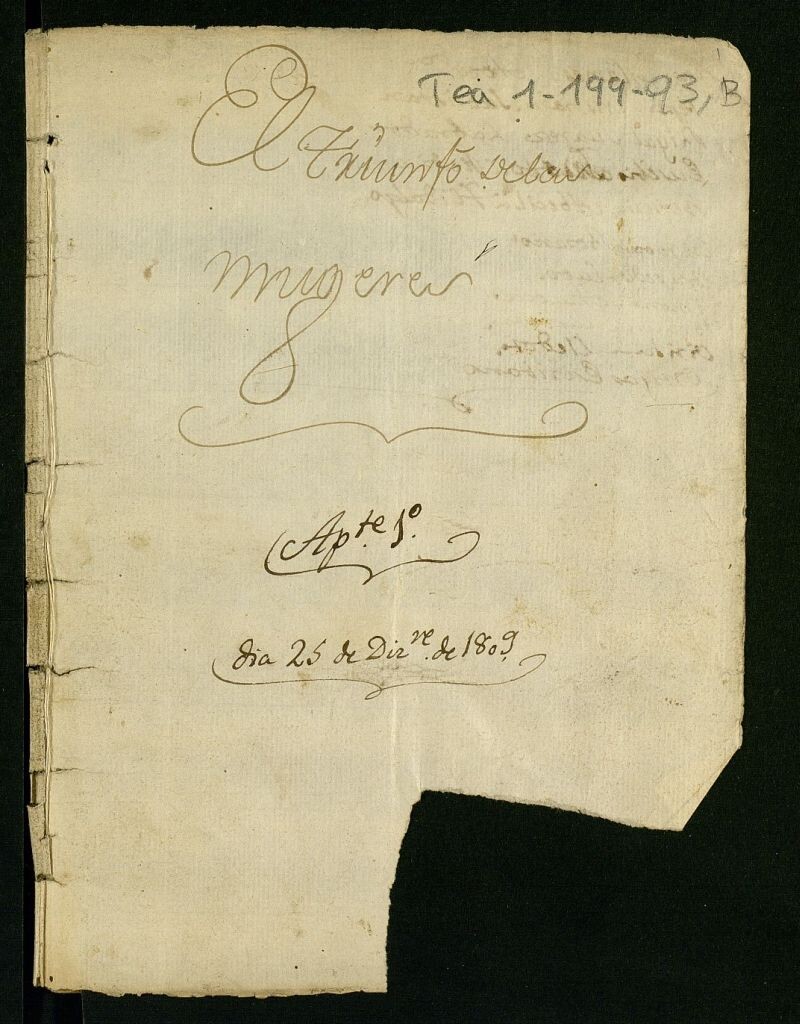 Tea 1-199-93, B
El Triunfo de las
mugeres
Ap.te 1º.
dia 25 de Diz.re de 1809